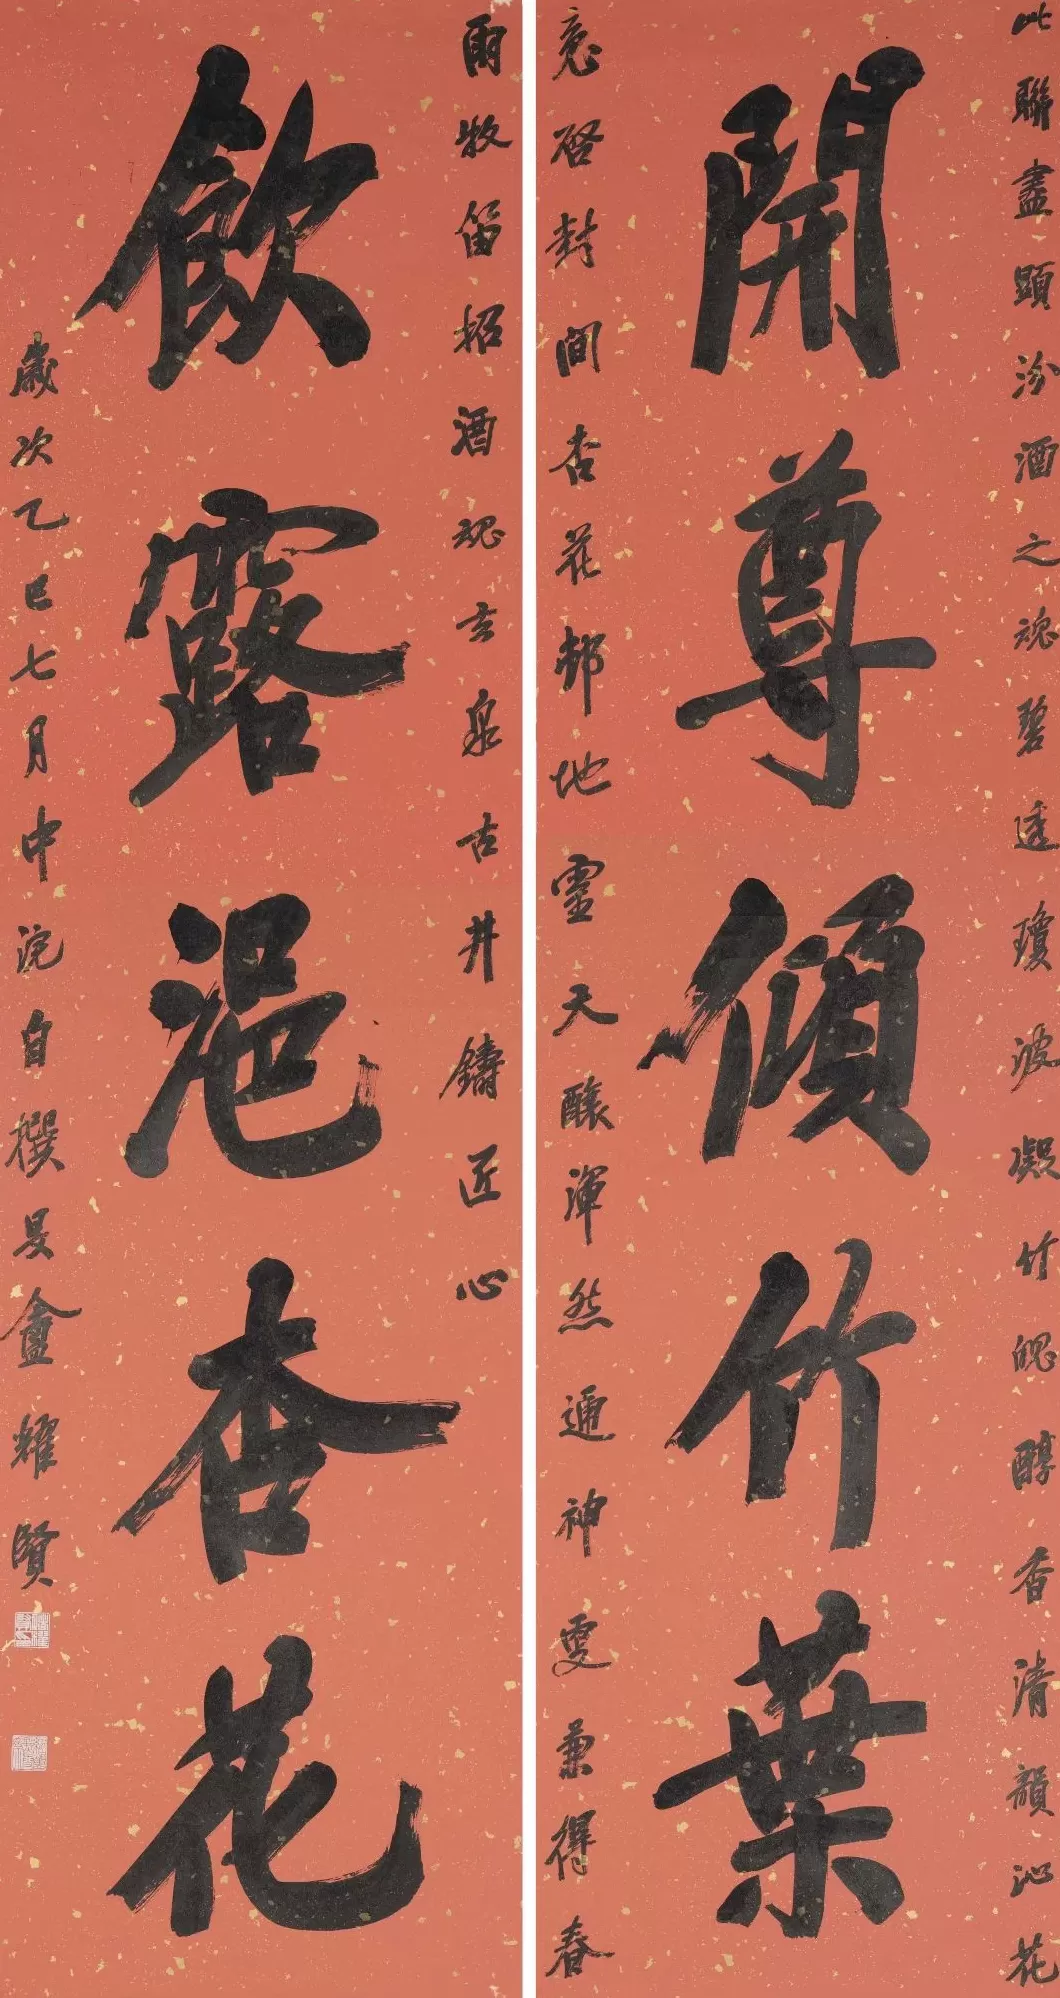 此聯盡顯汾酒之魂碧透瓊波凝竹魄醇香清韻沁花
開尊傾竹葉
意啓封間杏花邨地靈天釀渾然通神更兼得春
雨牧笛招酒魂玄泉古井鑄匠心
飲露浥杏花
歲次乙巳七月中浣自撰旻盦耀賢